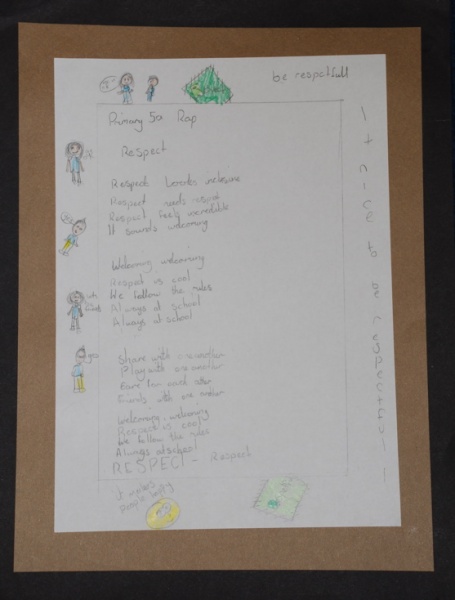 be respectfull
Primary 5a Rap
Respect
Respects looks inclusive
Respect needs respect
Respect feels incredable
It sounds welcoming
Welcoming, welcoming
Respect is cool
We follow the rules
Always at school
Always at school
Share with one another
Play with one another
Care for each other
Friends with one another
Welcoming, welcoming
Respect is cool
We follow the rules
Always at school
RESPECT - Respect
It makes
people happy
It nice to be respectful!
yes